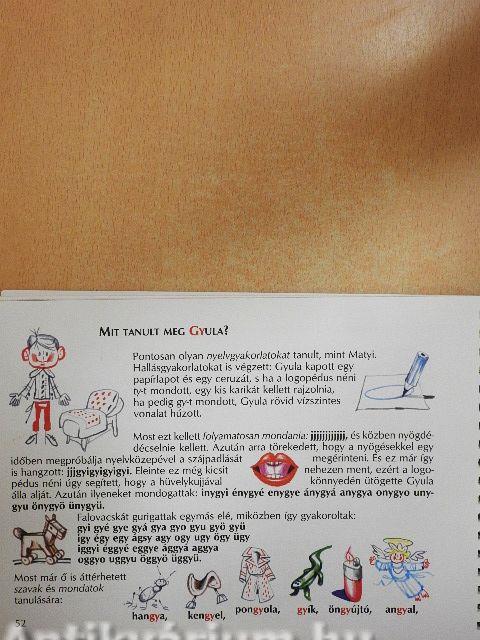 MIT TANULT MEG GYULA?
Pontosan olyan nyelvgyakorlatokat tanult, mint Matyi.
Hallásgyakorlatokat is végzett: Gyula kapott egy
papírlapot és egy ceruzát, s ha a logopédus néni
ty-t mondott, egy kis karikát kellett rajzolnia,
ha pedig gy-t mondott, Gyula rövid vízszintes
vonalat húzott.
Most ezt kellett folyamatosan mondania: jjjjjjjjjjjj, és közben nyögdé-
décselnie kellett. Azután arra törekedett, hogy a nyögésekkel egy
időben megpróbálja nyelvközepével a szájpadlását megérinteni. És ez már így
is hangzott: jjjgyigyigyigyi. Eleinte ez még kicsit nehezen ment, ezért a logo-
pédus néni úgy segített, hogy a hüvelykujjával könnyedén ütögette Gyula
álla alját. Azután ilyeneket mondogattak: inygyi énygyé enygye ánygyá anygya onygyo uny-
gyu önygyö ünygyü.
Falovacskát gurigattak egymás elé, miközben így gyakoroltak:
gyi gyé gye gyá gya gyo gyu gyö gyü
igy égy egy ágsy agy ogy ugy ögy ügy
iggyi éggyé eggye ággya aggya
oggyo uggyu öggyö üggyü.
Most már ő is áttérhetett
szavak és mondatok
tanulására:
hangya, kengyel, pongyola, gyík, öngyújtó, angyal,
52